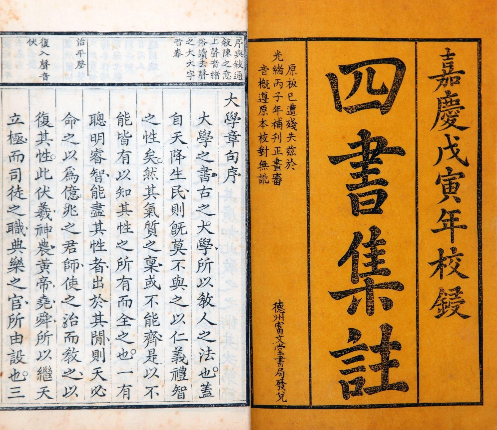 嘉慶戊寅年校鋟
四書集註
原板已遭殘失茲於
光緒丙子年補刊正畫審
音概遵原本校對無訛
德州富文堂書局發兌
序與敍通
敍陳之意
上聲者續
俗讀去聲
之大大字
皆舂
治平聲
復入聲音
伏
大學章句序
大學之書古之大學所以敎人之法也蓋
自天降生民則旣莫不與之以仁義禮智
之性矣然其氣質之稟或不能齊是以不
能皆有以知其性之所有而全之也一有
聰明睿智能盡其性者出於其閒則天必
命之以爲億兆之君師使之治而敎之以
復其性此伏羲神農黃帝堯舜所以繼天
立極而司徒之職典樂之官所由設也三